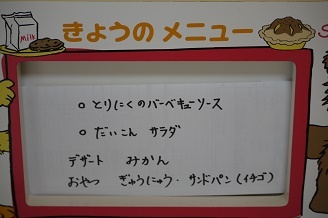 Milk
きょうの メニュー
S
○ とりにくのバーベキューソース
○ だいこん サラダ
デザート みかん
おやつ ぎゅうにゅう・サンドパン(イチゴ)